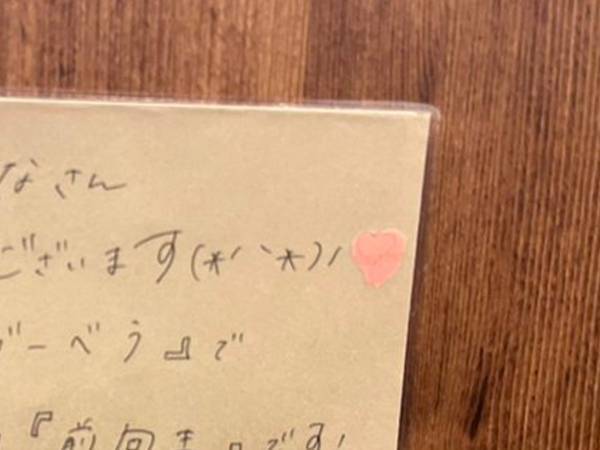 なさん
ございます(*'ヽ*)ノ
ーべう』で
『前向き』です!